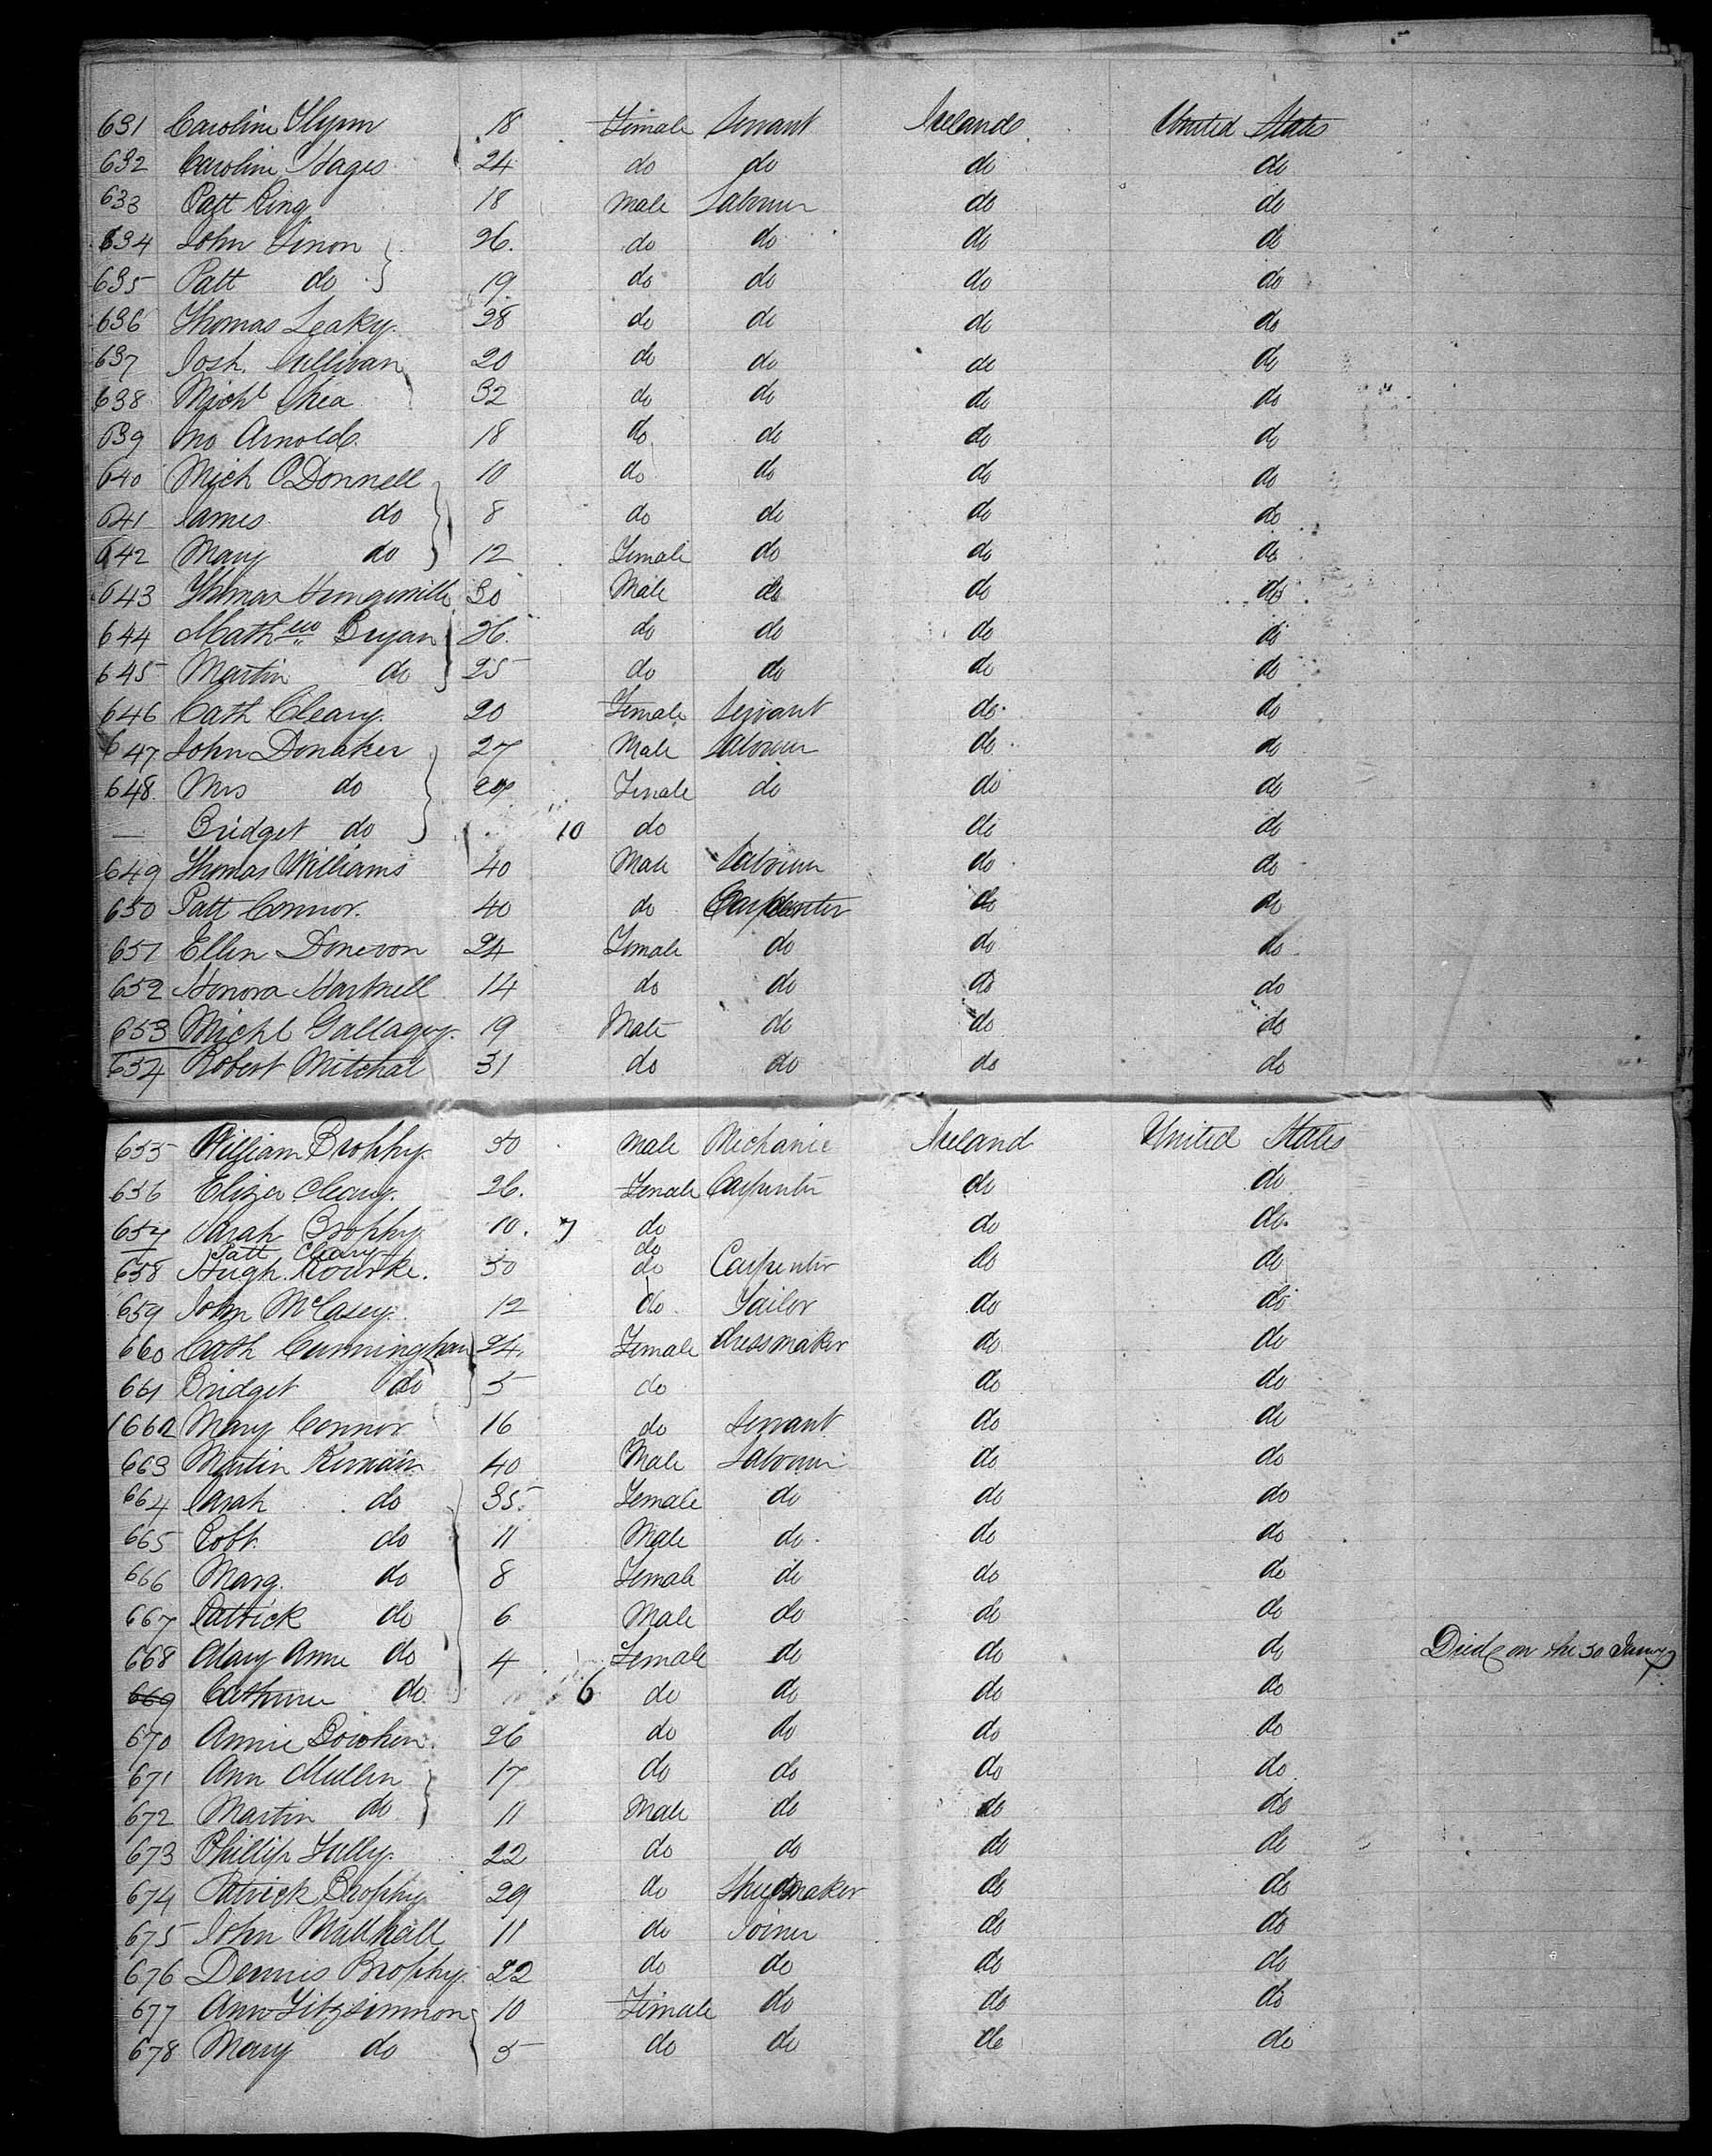 631 Caroline Flynn 18 Female Servant Ireland United States
632 Caroline Hages 24 do do do do
633 Patt Ring 18 Male Labourer do do
634 John Sinon 26. do do do do
635 Patt do 19 do do do do
636 Thomas Leaky. 28 do do do do
637 Josh. Sullivan 20 do do do do
638 Michl Shea 32 do do do do
639 Jno Arnold 18 do do do do
640 Mich O'Donnell 10 do do do do
641 James do 8 do do do do
642 Mary do 12 Female do do do
643 Thomas 30 Male do do do
644 Mathew Bryan 26. do do do do
645 Martin do 25 do do do do
646 Cath Cleary. 20 Female Servant do do
647 John Donaker 27 Male Labourer do do
648 Mrs do Female do do do
— Bridget do 10 do do do
649 Thomas Williams 40 Male Labourer do do
650 Patt Connor. 40 do Carpenter do do
651 Ellen Donevon 24 Female do do do
652 Honora Hartnell 14 do do do do
653 Michl Gallagey. 19 Male do do do
654 Robert Mitchal 31 do do do do
655 William Brophy. 30 Male Mechanic Ireland United States
656 Eliza Cleary. 26. Female Carpenter do do
657 Sarah Brophy 10. 7 do do do
— Patt Cleary do
658 Hugh Rourke. 50 do Carpenter do do
659 John McCasey. 12 do Tailor do do
660 Cath Cunningham 24. Female dressmaker do do
661 Bridget do 5 do do do
1662 Mary Connor 16 do Servant do do
663 Martin Kirwain 40 Male Labourer do do
664 Sarah do 35. Female do do do
665 Robt. do 11 Male do do do
666 Marg. do 8 Female do do do
667 Patrick do 6 Male do do do
668 Mary Anne do 4 Female do do do Died on the 30 Janury
669 Catherine do 6 do do do do
670 Annie 26 do do do do
671 Ann Mullen 17 do do do do
672 Martin do 11 Male do do do
673 Phillip Tully. 22 do do do do
674 Patrick Brophy 29 do Shoemaker do do
675 John Mulhall 11 do Joiner do do
676 Dennis Brophy. 22 do do do do
677 Ann Fitzsimmons 10 Female do do do
678 Mary do 5 do do do do